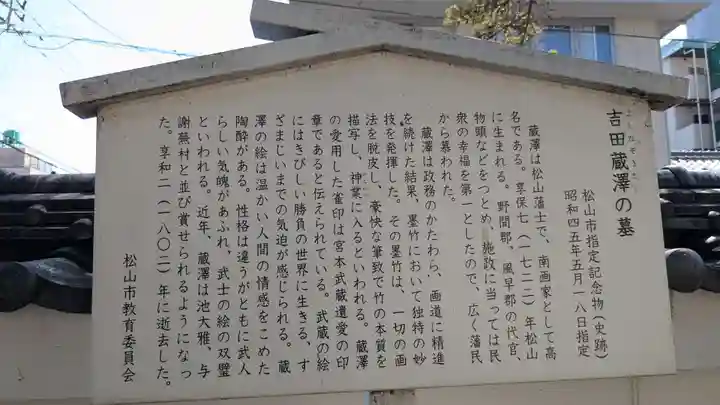 よしだぞうたく
吉田蔵澤の墓
松山市指定記念物(史跡)
昭和四五年五月一八日指定
蔵澤は松山藩士で、南画家として高
名である。享保七(一七二二)年松山
に生まれる。野間郡、風早郡の代官、
物頭などをつとめ、施政に当っては民
衆の幸福を第一としたので、広く藩民
から慕われた。
蔵澤は政務のかたわら、画道に精進
を続けた結果、墨竹において独特の妙
技を発揮した。その墨竹は、一切の画
法を脱皮し、豪快な筆致で竹の本質を
描写し、神業に入るといわれる。蔵澤
の愛用した雀印は宮本武蔵遺愛の印
章であると伝えられている。武蔵の絵
にはきびしい勝負の世界に生きる、す
ざまじいまでの気迫が感じられる。蔵
澤の絵は温かい人間の情感をこめた
陶酔がある。性格は違うがともに武人
らしい気魄があふれ、武士の絵の双璧
といわれる。近年、蔵澤は池大雅、与
謝蕪村と並び賞せられるようになっ
た。享和二(一八〇二)年に逝去した。
松山市教育委員会